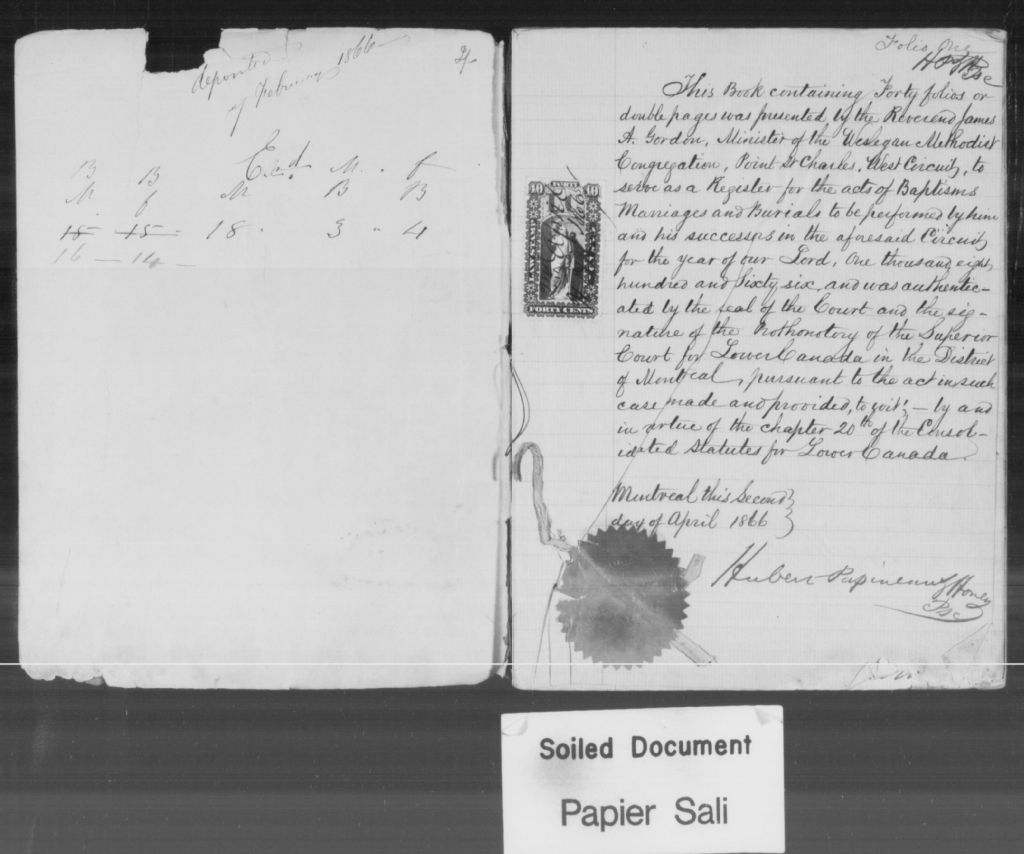 deposited
of February 1866
4
Ex.d
B B M. f
M f M B B
15 15 18 3 " 4
16 — 14 —
Folio One
HP&H
Psc
This Book containing Forty folios or
double pages was presented by the Reverend James
A. Gordon, Minister of the Weslegan Methodist
Congregation, Point St Charles, West Circuit, to
serve as a Register for the acts of Baptisms
Marriages and Burials to be performed by him
and his successors in the aforesaid Circuit
for the year of our Lord, One thousand eight
hundred and Sixty six, and was authentic-
ated by the seal of the Court and the sig-
nature of the Prothonotory of the Superior
Court for Lower Canada in the District
of Montreal, pursuant to the act in such
case made and provided, to wit! — by and
in virtue of the chapter 20th of the Consol-
idated Statutes for Lower Canada.
Montreal this Second
day of April 1866
Hubert Papineau & Honey
Psc
40 FORTY 40
FORTY CENTS
Soiled Document
Papier Sali